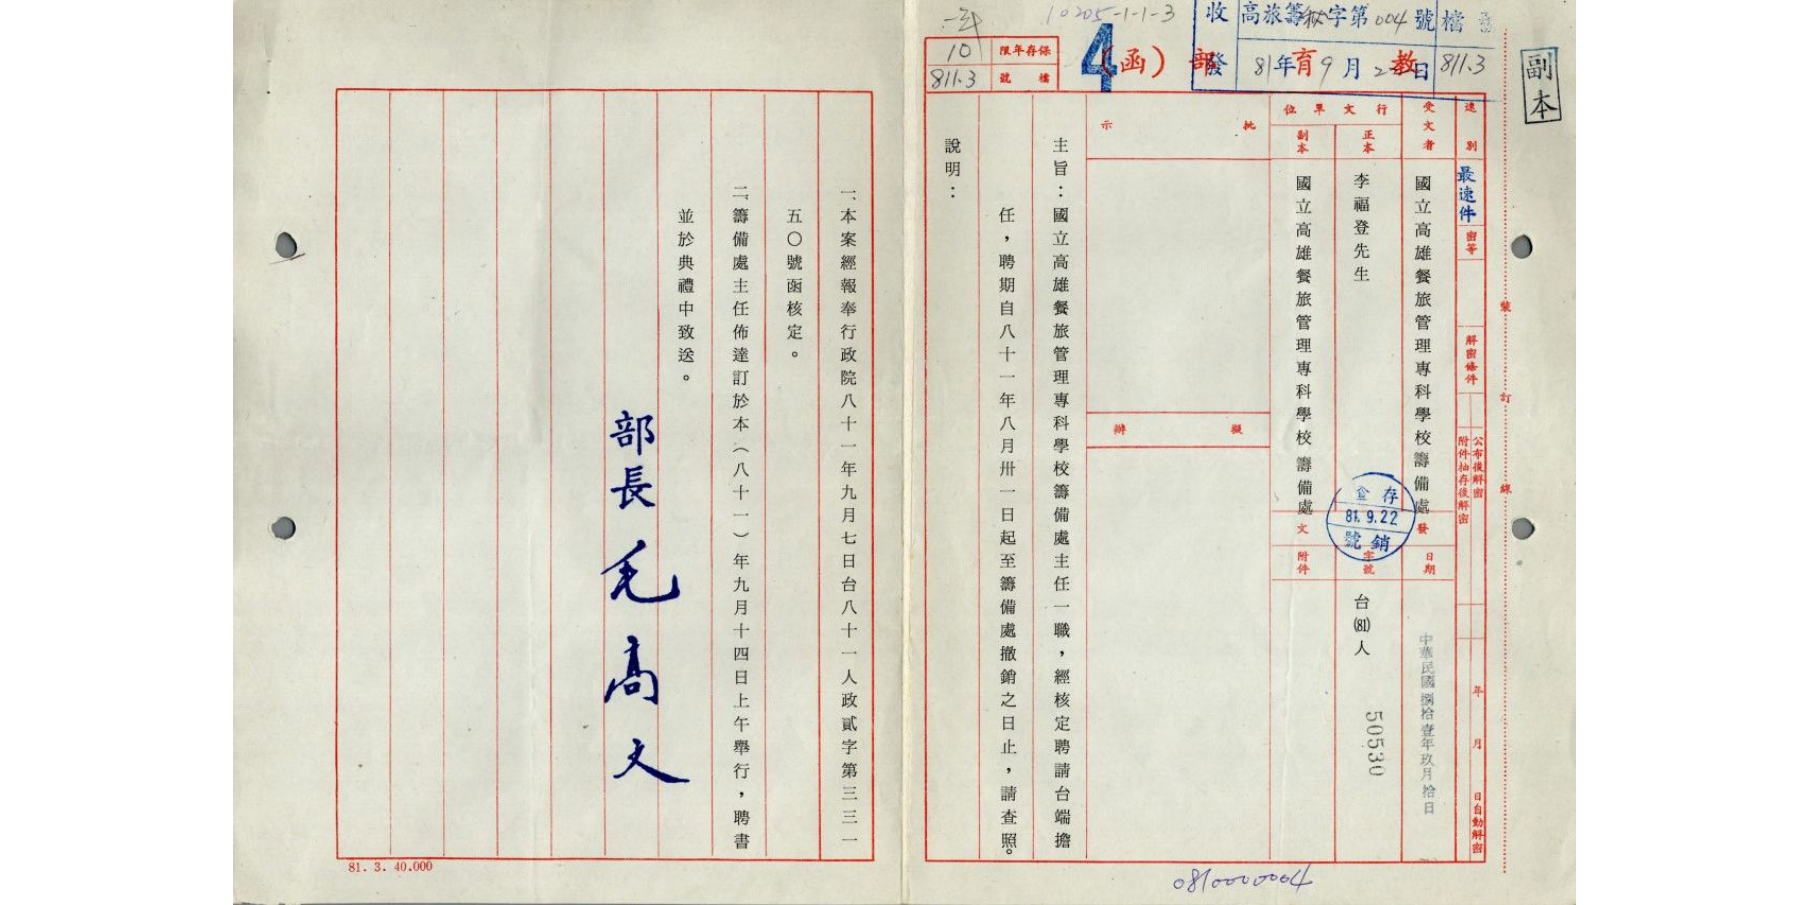 副本
收 高旅籌秘字第004號 檔
發 81年9月2 日 811.3
教育部(函)
4
10205-1-1-3
保存年限 10
檔號 811.3
速別 最速件
密等
解密條件
公布後解密
附件抽存後解密
年 月 日自動解密
受文者 國立高雄餐旅管理專科學校籌備處
行文單位
正本 李福登先生
副本 國立高雄餐旅管理專科學校籌備處
發文
日期 中華民國捌拾壹年玖月拾日
字號 台(81)人 50530
附件
存查
81.9.22
銷號
批示
擬辦
主旨：國立高雄餐旅管理專科學校籌備處主任一職，經核定聘請台端擔
任，聘期自八十一年八月卅一日起至籌備處撤銷之日止，請查照。
說明：
一、本案經報奉行政院八十一年九月七日台八十一人政貳字第三三一
五〇號函核定。
二、籌備處主任佈達訂於本（八十一）年九月十四日上午舉行，聘書
並於典禮中致送。
部長毛高文
裝訂線
81. 3. 40.000
0810000004